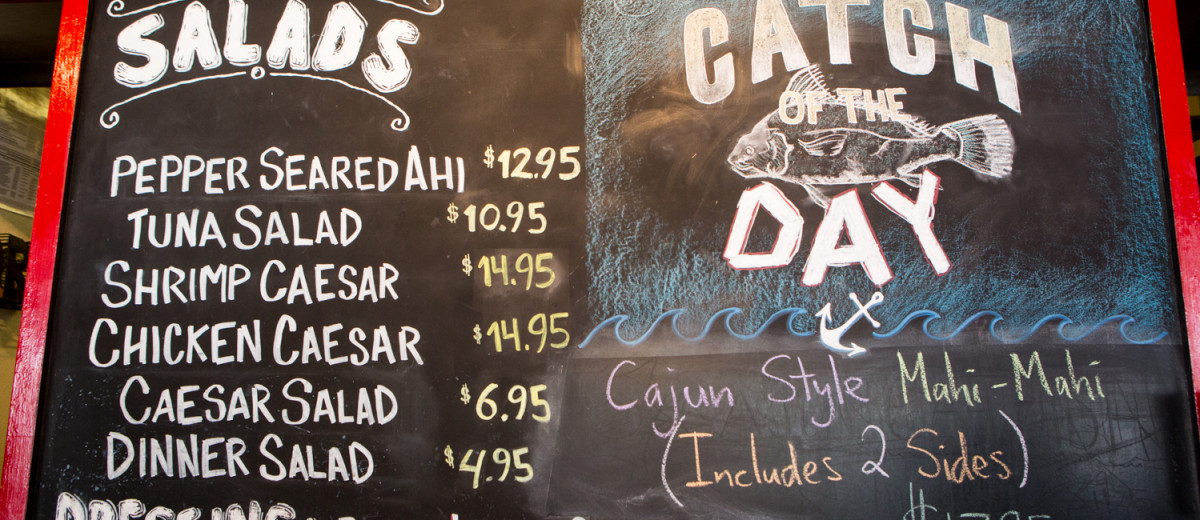 SALADS
PEPPER SEARED AHI $12.95
TUNA SALAD $10.95
SHRIMP CAESAR $14.95
CHICKEN CAESAR $14.95
CAESAR SALAD $6.95
DINNER SALAD $4.95
DRESSING
CATCH
OF THE
DAY
Cajun Style Mahi-Mahi
(Includes 2 Sides)